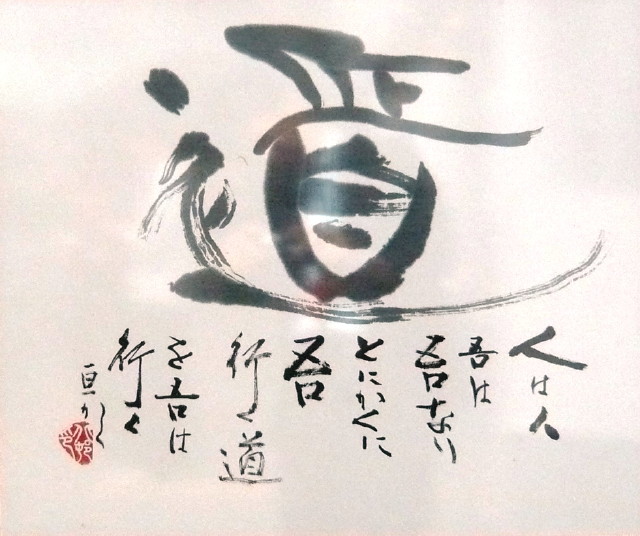 道
人は人
吾は
吾なり
とにかくに
吾
行く道
を吾は
行く
亘かく